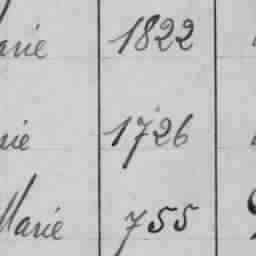 arie 1822
rie 1726
Marie 755